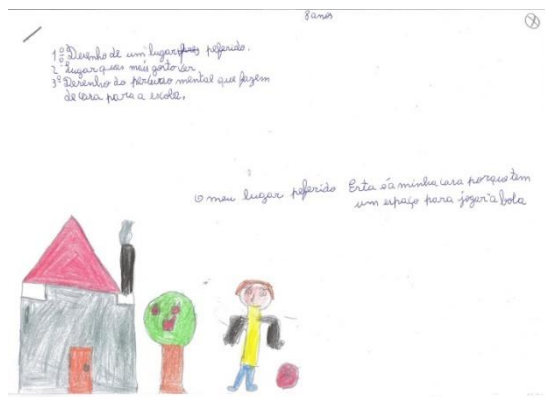 8 anos
1º Desenho de um lugar peferido.
2º lugar que mais gosto ser
3º Desenho do percurso mental que fazem
de casa para a escola.
O meu lugar peferido Esta é a minha casa porque tem
um espaço para jogar à bola